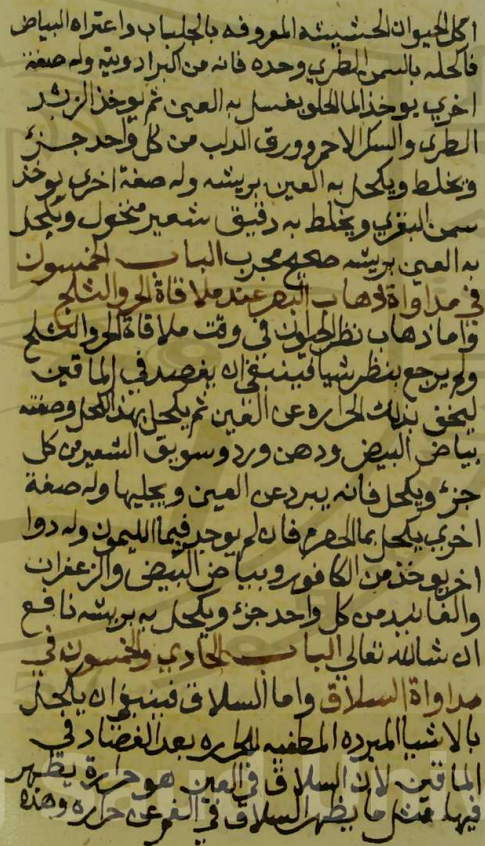 اكل الحيوان الحشيشة المعروفه بالحلباب واعتراه البياض
فاكحله بالسمن المطري وحده فانه من اكبر ادويته وله صفة
اخري يوخذ الما الحلو يغسل به العين ثم يوخذ الزبد
الطري والسكر الاحمر وورق الدلب من كل واحد جزء
ويخلط ويكحل به العين بريشه وله صفة اخري يوخذ
سمن البقري ويخلط به دقيق شعير منخول ويكحل
به العين بريشه صحيح مجرب الباب الخمسون
في مداواة ذهاب البصر عند ملاقاة الحر والثلج
واما ذهاب نظر الحيوان في وقت ملاقاة الحر والثلج
ولم يرجع ينظر شيا فينبغي ان يفصد في الماقين
ليخف بذلك الحراره عن العين ثم يكحل بهذا الكحل وصفته
بياض البيض ودهن ورد وسويق الشعير من كل
جزء ويكحل فانه يبرد عن العين ويجليها وله صفة
اخري يكحل بما الحصرم فان لم يوجد فبما الليمون وله دوا
اخر يوخذ من الكافور وبياض البيض والزعفران
والفانيد من كل واحد جزء ويكحل به بريشه نافع
ان شاالله تعالي الباب الحادي والخمسون في
مداواة السلاق واما السلاق فينبغي ان يكحل
بالاشيا المبرده المطفيه للحراره بعد الفصاد في
الماقين لان السلاق في العين هو حرارة يظهر
فيها مثل ما يظهر السلاق في الفم عن حراره وهذه